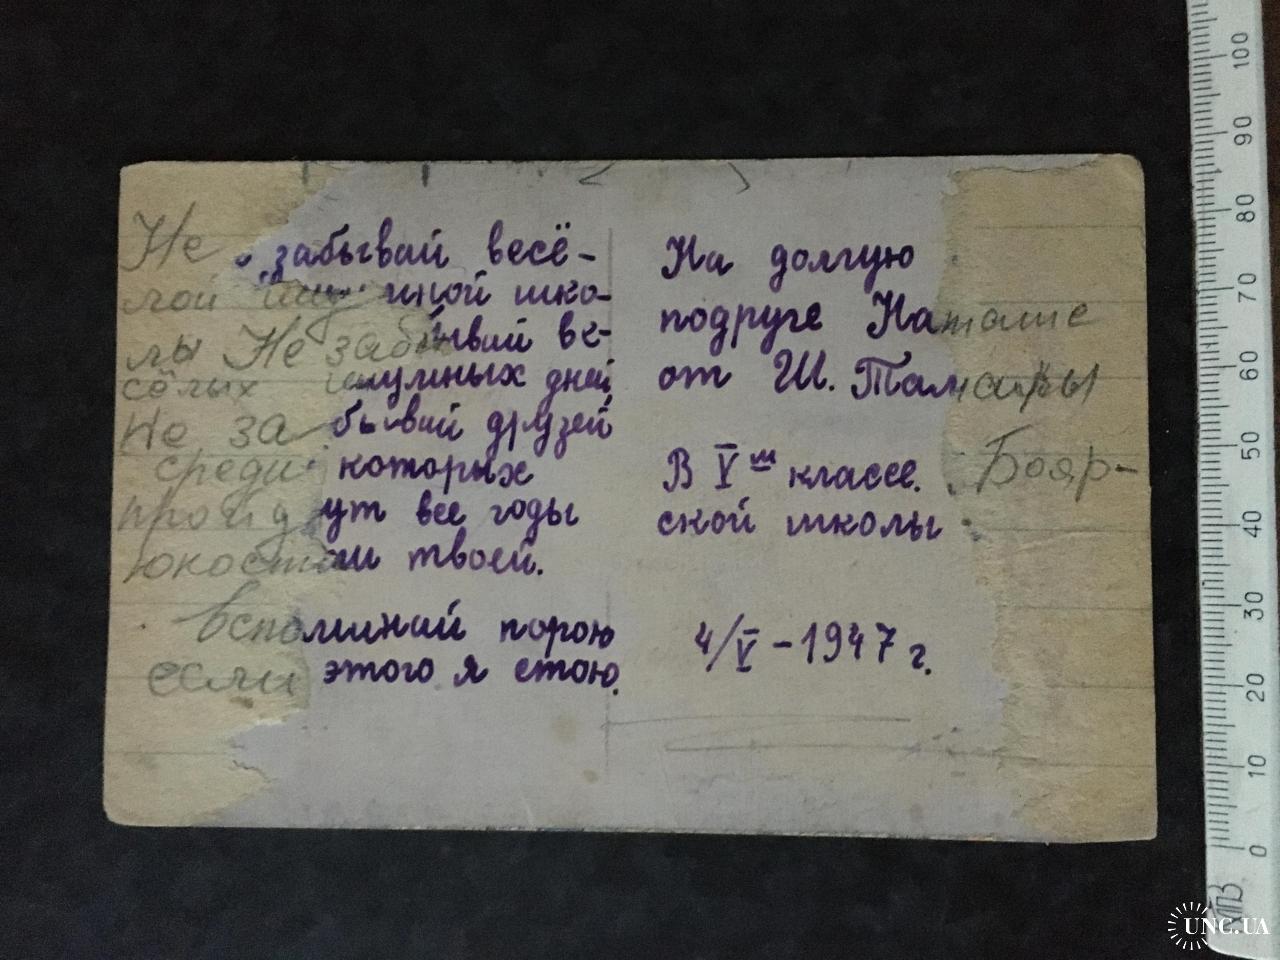 Не забывай весё-
лой шумной шко-
лы Не забывай ве-
сёлых шумных дней
Не забывай друзей
среди которых
пройдут все годы
юности твоей.
вспоминай порою
если этого я стою.
На долгую
подруге Наташе
от Ш. Тамары
В V м классе. Бояр-
ской школы
4/V - 1947 г.
0 10 20 30 40 50 60 70 80 90 100
ХПЗ
UNC.UA